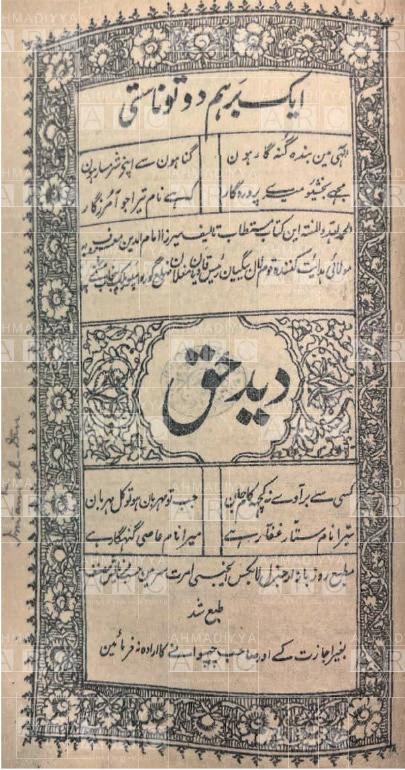 ایک برہم دوتو ناستی
الٰہی مین بندہ گنہ گار ہون
گناہون سے اپنے شرمسار ہون
مجھے بخشیو میرے پروردگار
کہ ہے نام تیرا جو آمرزگار
الحمد للہ والمنۃ این کتاب مستطاب تالیف میرزا امام الدین
ہدایت کنندہ قوم لال بیگیان رئیس قادیان
دید حق
کسی سے بر آوے نہ کچھ کام جان
جب تو مہربان ہو تو کل مہربان
تیرا نام ستار غفار ہے
میرا نام عاصی گنہگار ہے
طبع شد
بغیر اجازت کے اور صاحب چھپوانے کا ارادہ نہ فرمائین
AHMADIYYA
ARC